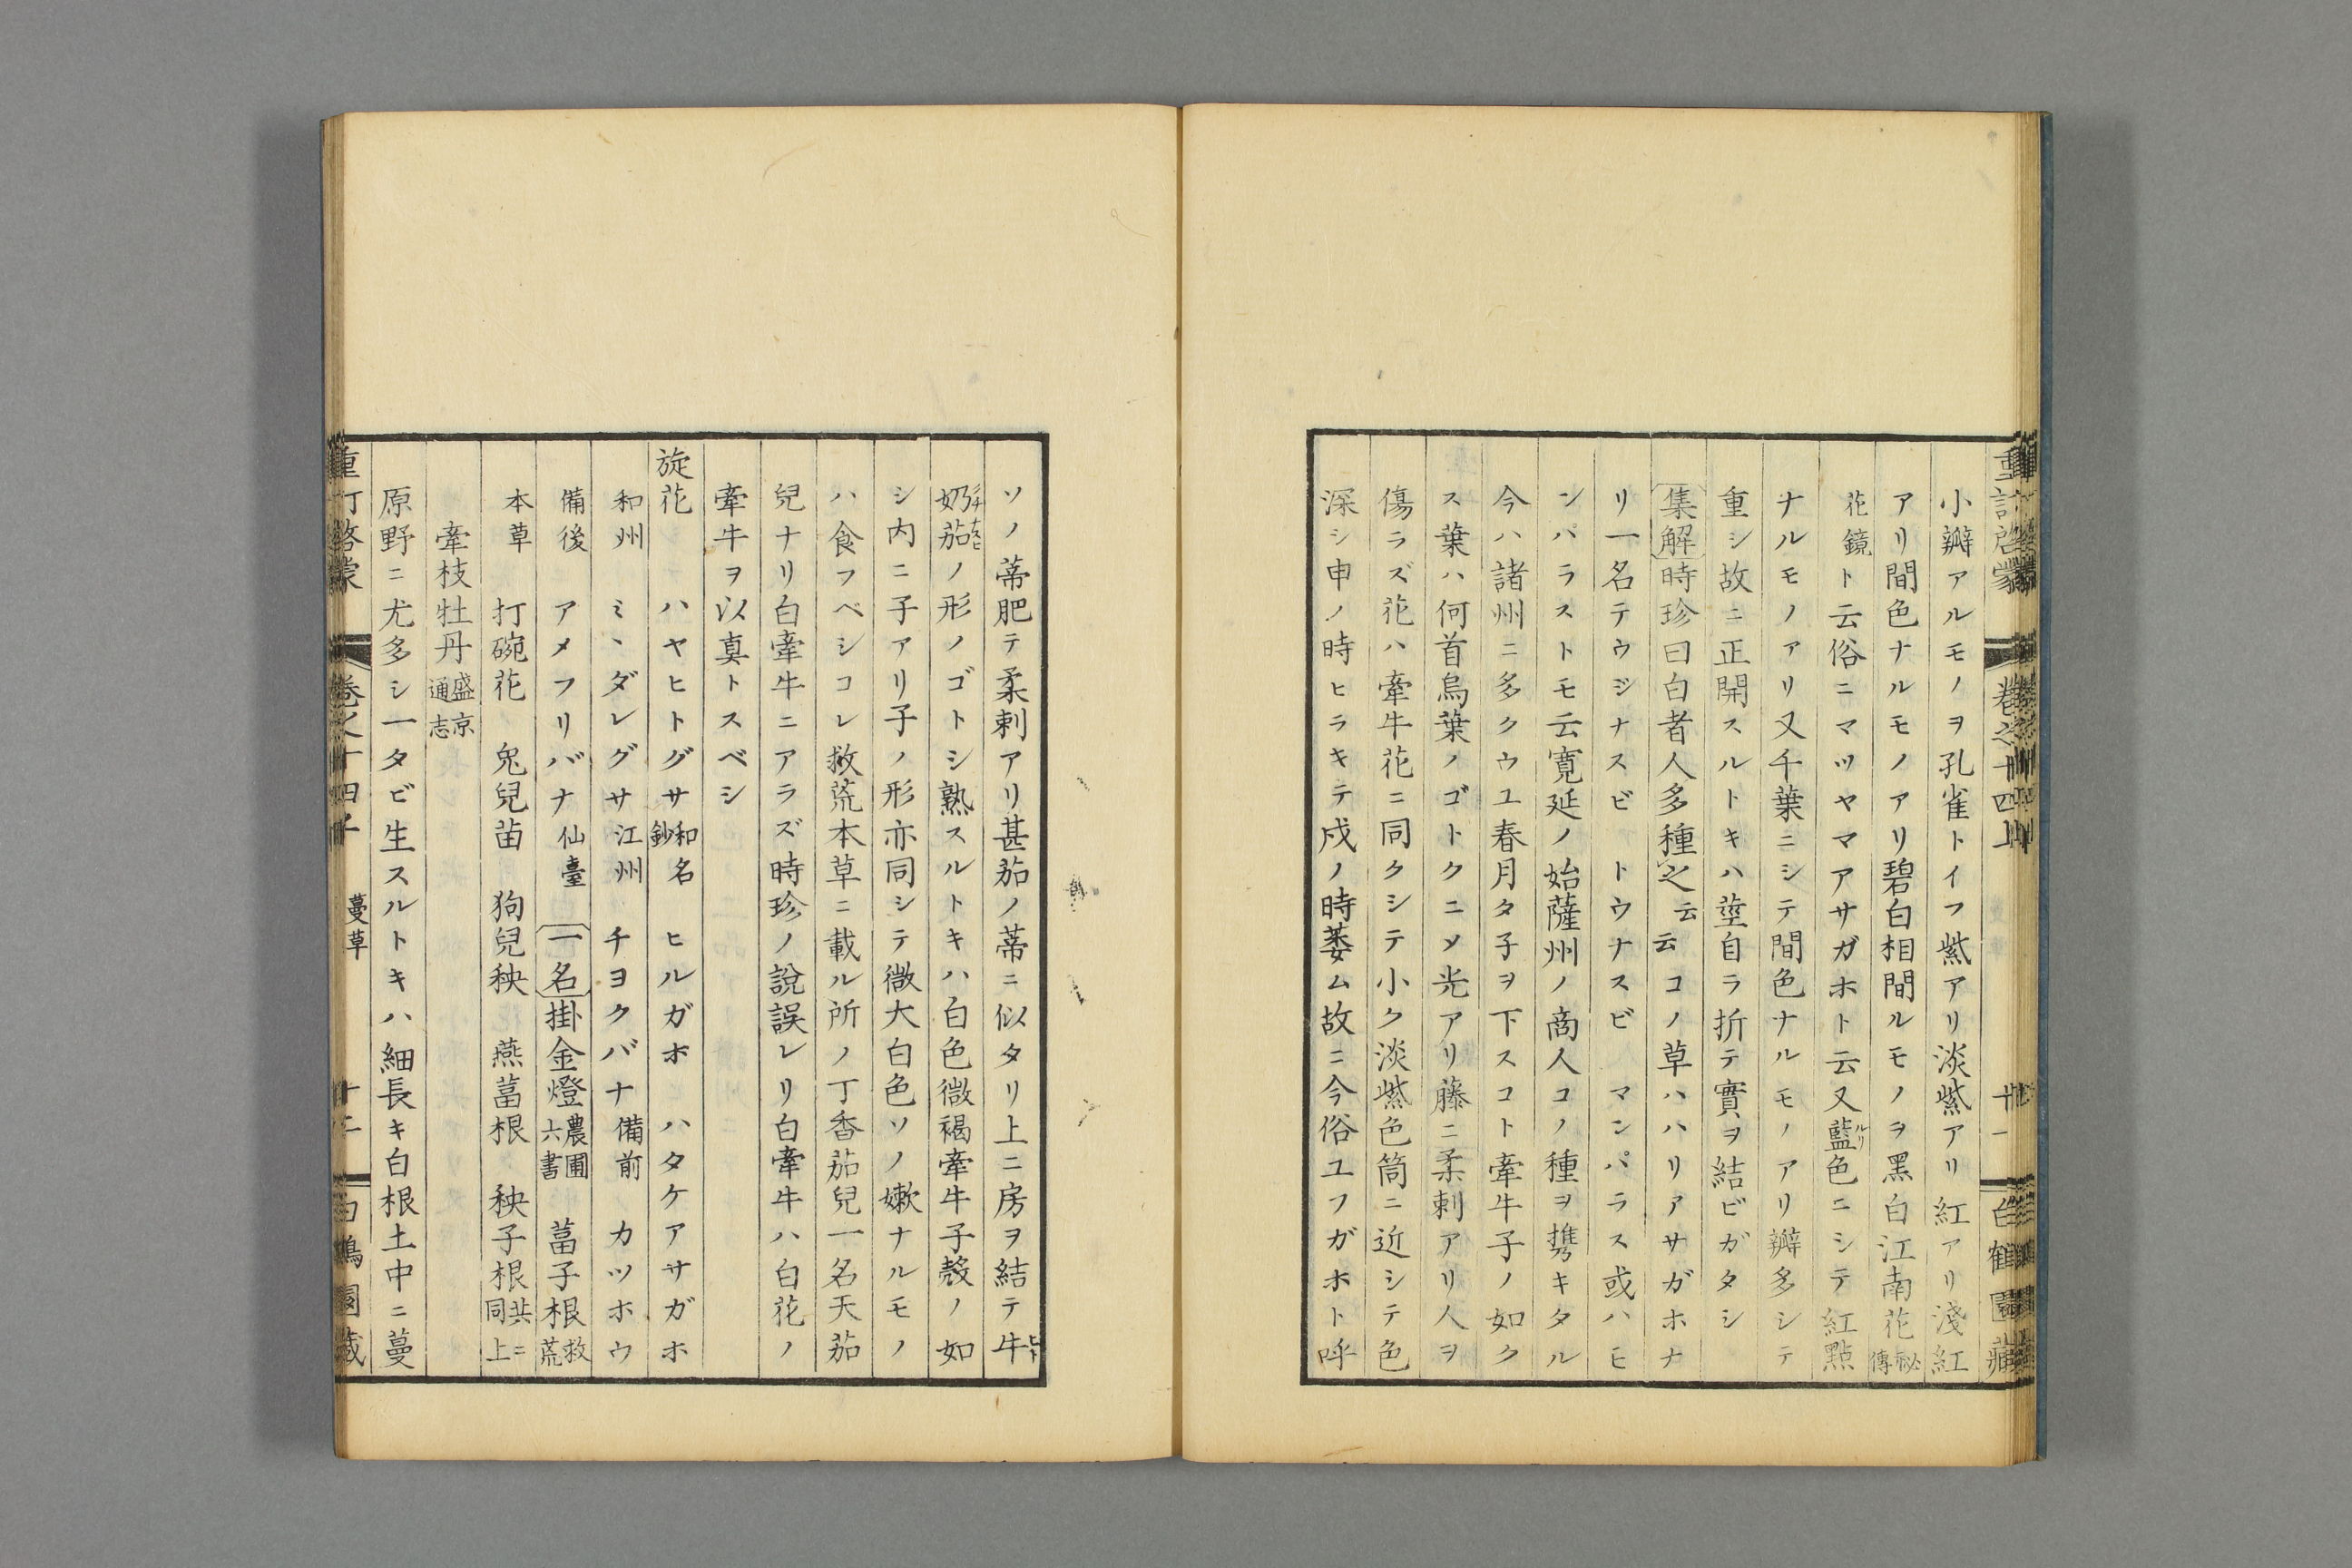 小瓣アルモノヲ孔雀トイフ紫アリ淡紫アリ紅アリ淺紅
アリ間色ナルモノアリ碧白相間ルモノヲ黑白江南花秘傳
花鏡ト云俗ニマツヤマアサガホト云又藍ルリ色ニシテ紅點
ナルモノアリ又千葉ニシテ間色ナルモノアリ瓣多シテ
重シ故ニ正開スルトキハ莖自ラ折テ實ヲ結ビガタシ
集解時珍曰白者人多種之云云コノ草ハハリアサガホナ
リ一名テウジナスビ トウナスビ マンパラス或ハモ
ンパラストモ云寬延ノ始薩州ノ商人コノ種ヲ携キタル
今ハ諸州ニ多クウユ春月タ子ヲ下スコト牽牛子ノ如ク
ス葉ハ何首烏葉ノゴトクニメ光アリ藤ニ柔刺アリ人ヲ
傷ラズ花ハ牽牛花ニ同クシテ小ク淡紫色筒ニ近シテ色
深シ申ノ時ヒラキテ戌ノ時萎ム故ニ今俗ユフガホト呼
ソノ蒂肥テ柔刺アリ甚茄ノ蒂ニ似タリ上ニ房ヲ結テ牛
奶茄ノ形ノゴトシ熟スルトキハ白色微褐牽牛子殼ノ如
シ内ニ子アリ子ノ形亦同シテ微大白色ソノ嫰ナルモノ
ハ食フベシコレ救荒本草ニ載ル所ノ丁香茄兒一名天茄
兒ナリ白牽牛ニアラズ時珍ノ說誤レリ白牽牛ハ白花ノ
牽牛ヲ以真トスベシ
旋花 ハヤヒトグサ和名鈔 ヒルガホ ハタケアサガホ
和州 ミヽダレグサ江州 チヨクバナ備前 カツホウ
備後 アメフリバナ仙臺 一名掛金燈農圃六書 葍子根救荒
本草 打碗花 兔兒苗 狗兒秧 燕葍根 秧子根共ニ同上
牽枝牡丹盛京通志
原野ニ尤多シ一タビ生スルトキハ細長キ白根土中ニ蔓
蔓草
十二